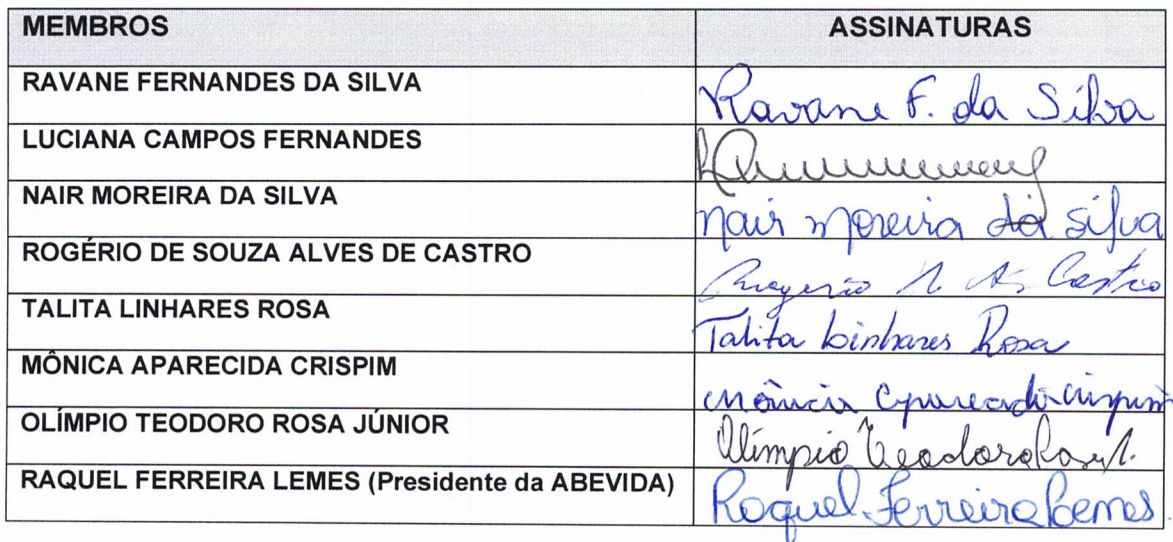 MEMBROS ASSINATURAS
RAVANE FERNANDES DA SILVA Ravane F. da Silva
LUCIANA CAMPOS FERNANDES
NAIR MOREIRA DA SILVA Nair Moreira da Silva
ROGÉRIO DE SOUZA ALVES DE CASTRO Rogerio A. Castro
TALITA LINHARES ROSA Talita Linhares Rosa
MÔNICA APARECIDA CRISPIM Mônica Aparecida Crispim
OLÍMPIO TEODORO ROSA JÚNIOR Olímpio Teodoro Rosa Jr.
RAQUEL FERREIRA LEMES (Presidente da ABEVIDA) Raquel Ferreira Lemes.